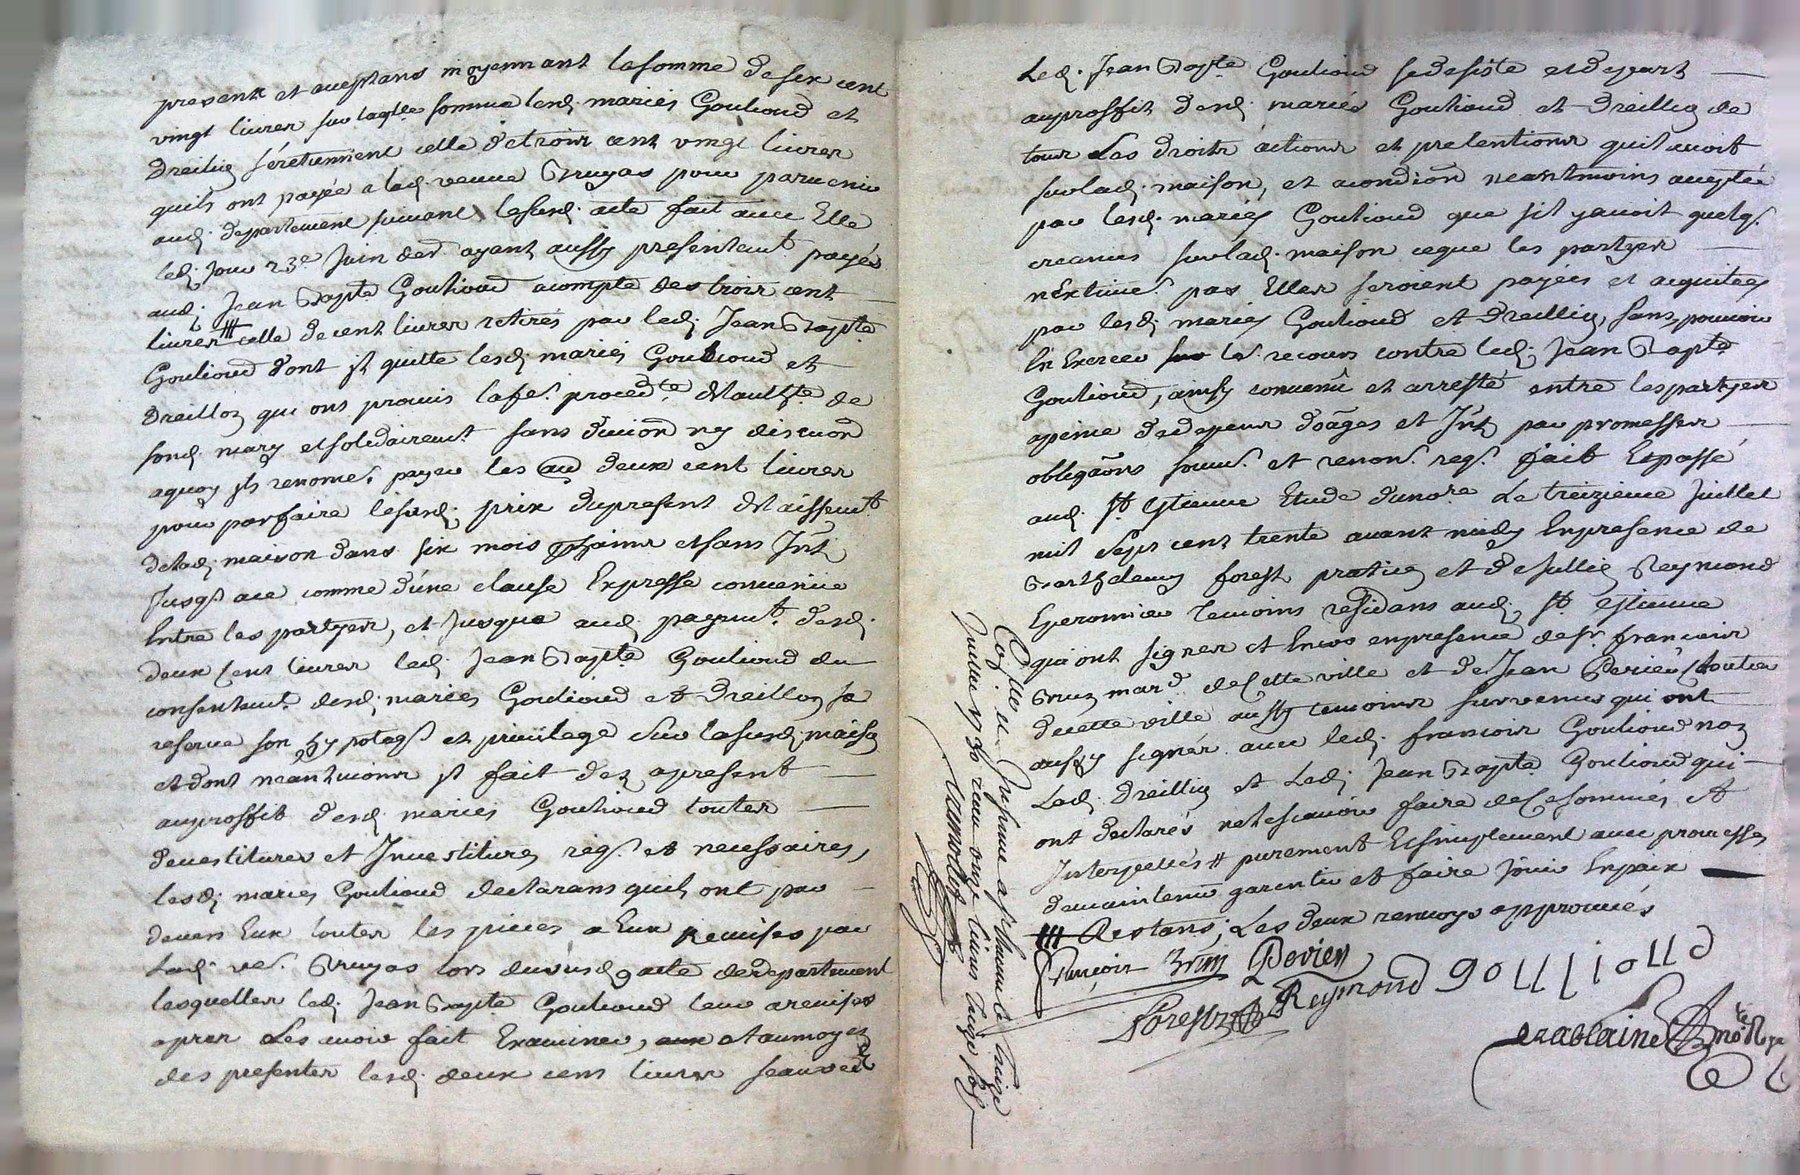 present et aceptans moyennant la somme de six cent
vingt livres sur laqlle somme lesd. mariés Goulioud et
Dreillig se retiennent celle de trois cent vingt livres
quils ont payée a lad. veuve Bruyas pour parvenir
aud. departement suivant lesusd. acte fait avec Elle
led. jour 23e Juin der ayant aussy presentemt. payés
aud. Jean Bapte Goulioud acompte des trois cent
livres # celle de cent livres retirés par led. Jean Bapte
Goulioud dont jl quitte lesd. mariés Goulioud et
Dreillig qui ont promis la fe. proced.te de
sond. mary et solidairemt. sans division ny discuon
aquoy jls renonce. payer les deux cent livres
pour parfaire lesusd. prix du present delaissemt.
de lad. maison dans six mois prochains et sans Jnt.
Jusqs. a ce comme d'une clause Expresse convenüe
Entre les partyes, et Jusques aud. payemt. desd.
deux cent livres led. Jean Bapte Goulioud du
consentemt. desd. mariés Goulioud et Dreillig se
reserve son hypoteqs. et privilege sur lasusd. maison
et dont neantmoins jl fait dez apresent
auproffit desd. mariés Goulioud toutes
devestitures et Jnvestitures reqs. et necessaires,
lesd. mariés Goulioud declarans quils ont par
devers Eux toutes les pieces a Eux remises par
lad. ve. Bruyas lors du susd. acte de departement
lesquelles led. Jean Bapte Goulioud leur a remises
apres les avoir fait Examiner, et au moyen
des presentes lesd. deux cens livres
Led. Jean Bapte Goulioud se desiste et depart
auproffit desd. mariés Goulioud et Dreillig de
tous Les droits actions et pretentions quil avoit
sur lad. maison, et a condion neantmoins aceptée
par lesd. mariés Goulioud que sil y avoit quelqs.
creances sur lad. maison ce que les partyes
n'Estime. pas Elles seroient payées et aquitées
par lesd. mariés Goulioud et Dreillig, sans pouvoir
En Exercer le recours contre led. Jean Bapte
Goulioud, ainsy convenu et arresté entre les partyes
apeine de depens doages et Jnt. par promesses
obligaons soum. et renon. reqs. fait Et passé
aud. St. Etienne Etude du no.re Le treizieme Juillet
mil sept cent trente avant midy En presence de
Barthelemy forest praticien et de Jullien Reymond
Eperonnier temoins residans aud. St. Etienne
qui ont signer et Encor en presence de sr. francois
Brun mard. de Cette ville et de Jean Perier
de cette ville aussy temoins survenus qui ont
aussy signér avec led. francois Goulioud non
Lad. Dreillig et Led. Jean Bapte Goulioud qui
ont declarés ne le scavoir faire de Ce sommés, et
Jnterpellés # purement Et simplement avec promesses
de maintenir garentir et faire Jouir En paix
# Restans, Les deux renvoys approuvés
François Brun Perier
goullioud
Forest Reymond
Cont.llé et Insinué a St. Etienne le treize
Juillet 1730